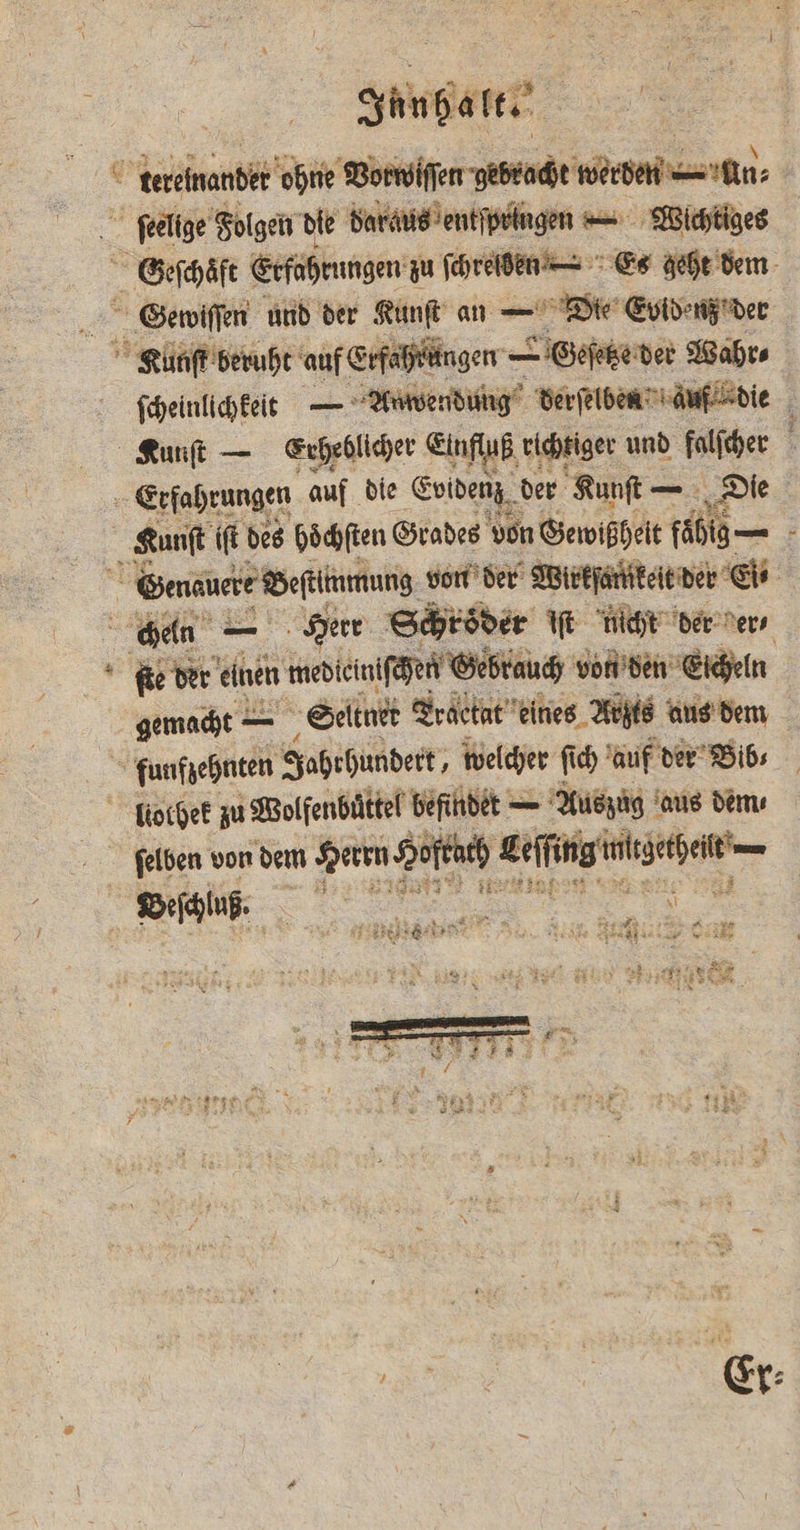 Jnnhalt.
tereinander ohne Vorwiſſen gebracht werden — Un-
ſeelige Folgen die daraus entſpringen — Wichtiges
Geſchäft Erfahrungen zu ſchreiben — Es geht dem
Gewiſſen und der Kunſt an — Die Evidenz der
Kunſt beruht auf Erfahrungen — Geſetze der Wahr-
ſcheinlichkeit — Anwendung derſelben auf die
Kunſt — Erheblicher Einfluß richtiger und falſcher
Erfahrungen auf die Evidenz der Kunſt — Die
Kunſt iſt des höchſten Grades von Gewißheit fähig —
Genauere Beſtimmung von der Wirkſamkeit der Ei-
cheln — Herr Schröder iſt nicht der er-
ſte der einen mediciniſchen Gebrauch von den Eicheln
gemacht — Seltner Tractat eines Arzts aus dem
funfzehnten Jahrhundert, welcher ſich auf der Bib-
liothek zu Wolfenbüttel befindet — Auszug aus dem-
ſelben von dem Herrn Hofrath Leſſing mitgetheilt —
Beſchluß.
Er-